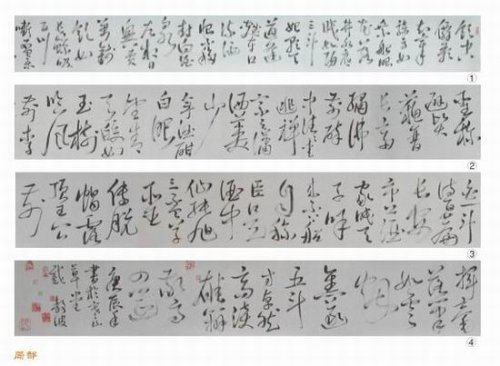 飲中
八仙
歌知章
騎馬
似乘
船眼
花落
井水底
眠汝陽
三斗
始朝天
道逢
麴車口
流涎
恨不移
封向酒
泉
左相日
興費
萬錢
飲如
長鯨吸
百川
銜杯樂
①
聖稱
避賢
蘇晉
長齋
繡佛
前醉
中往往愛
逃禪
宗之瀟
洒美
少年
舉觴酣
白眼
望青
天皎如
玉樹
臨風
前李
②
白一斗
詩百篇
長安
市上酒
家眠天
子呼
來不上船
自稱
臣是
酒中
仙張旭
三盃草
聖
傳脫
帽露
頂王公
前
③
揮毫
落紙
如雲
烟
焦遂
五斗
方卓然
高談
雄辯
驚
四筵
庚辰年
草堂
④
局部